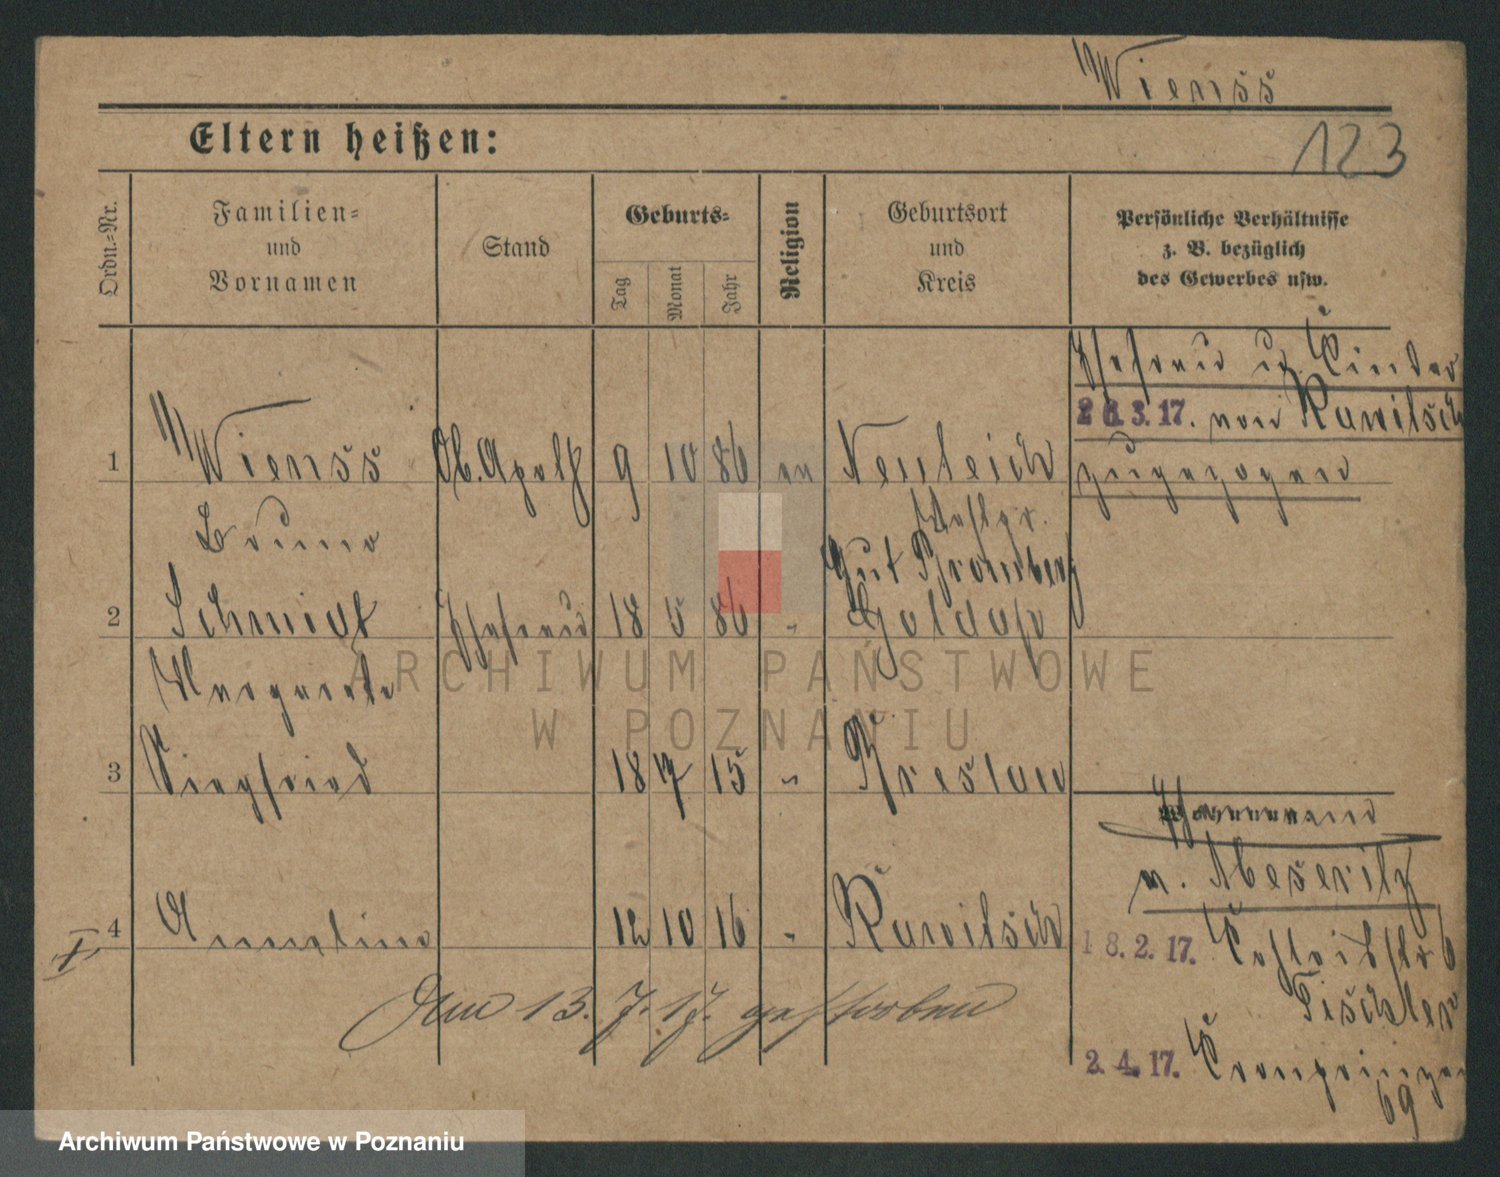 Wienss
123
Eltern heißen:
Ordn.-Nr.
Familien- und Vornamen
Stand
Geburts-
Tag
Monat
Jahr
Religion
Geburtsort und Kreis
Persönliche Verhältnisse z. B. bezüglich des Gewerbes usw.
Ehefrau u. Kinder
26.3.17. von Rawitsch
zugezogen
1 Wienss Ob. 9 10 86 ev Neuteich
Bruno Westpr.
Gut Bromberg
2 Schmidt Ehefrau 18 5 86 " Goldap
Margarete
3 Siegfried 18 7 15 " Breslau
Ehemann
v. Meseritz
4 Anneline 12 10 16 " Rawitsch
18.2.17.
Tischler
Am 13. 7. 17. gestorben
2. 4. 17. Kronprinzen
69
ARCHIWUM PAŃSTWOWE
W POZNANIU
Archiwum Państwowe w Poznaniu